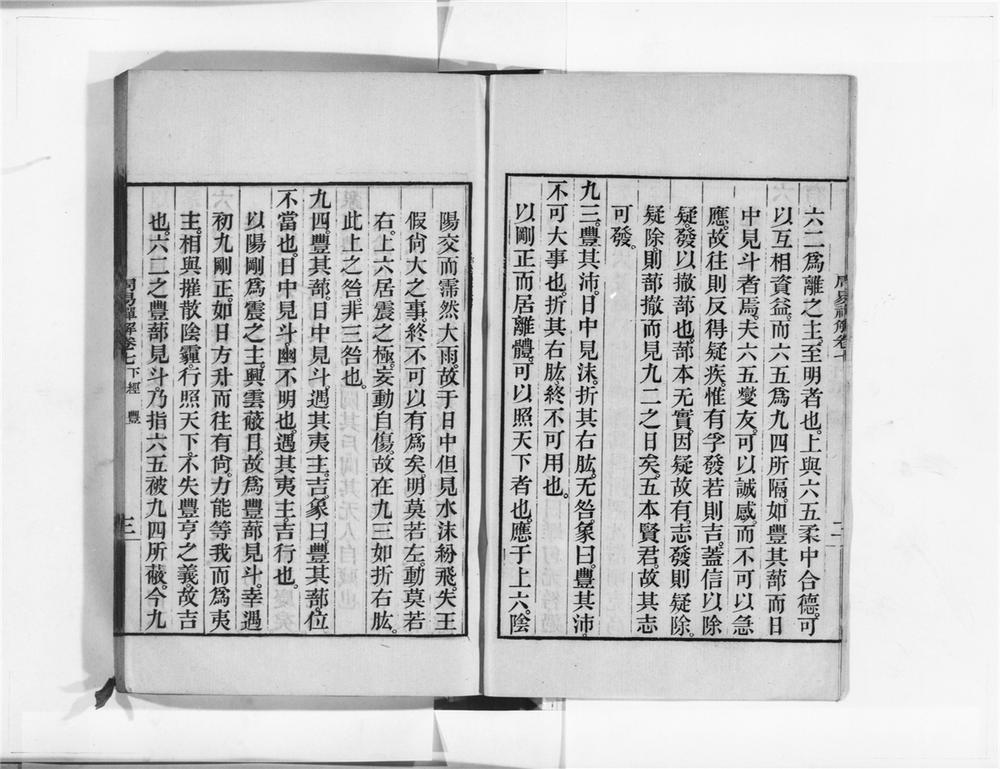 六二爲離之主。至明者也。上與六五柔中合德。可
以互相資益。而六五爲九四所隔。如豐其蔀而日
中見斗者焉。夫六五燮友。可以誠感。而不可以急
應。故往則反得疑疾。惟有孚發若則吉。蓋信以除
疑。發以撤蔀也。蔀本无實。因疑故有。志發則疑除。
疑除。則蔀撤而見九二之日矣。五本賢君。故其志
可發。
九三。豐其沛。日中見沫。折其右肱。无咎。象曰。豐其沛。
不可大事也。折其右肱。終不可用也。
以剛正而居離體。可以照天下者也。應于上六。陰
陽交而霈然大雨。故于日中但見水沫紛飛。失王
假尙大之事。終不可以有爲矣。明莫若左。動莫若
右。上六居震之極。妄動自傷。故在九三如折右肱。
此上之咎。非三咎也。
九四。豐其蔀。日中見斗。遇其夷主。吉。象曰。豐其蔀。位
不當也。日中見斗。幽不明也。遇其夷主。吉行也。
以陽剛爲震之主。興雲蔽日。故爲豐蔀見斗。幸遇
初九剛正。如日方升而往有尙。力能等我而爲夷
主。相與摧散陰霾。行照天下。不失豐亨之義。故吉
也。六二之豐蔀見斗。乃指六五被九四所蔽。今九
周易禪解卷七 下經 豐 三